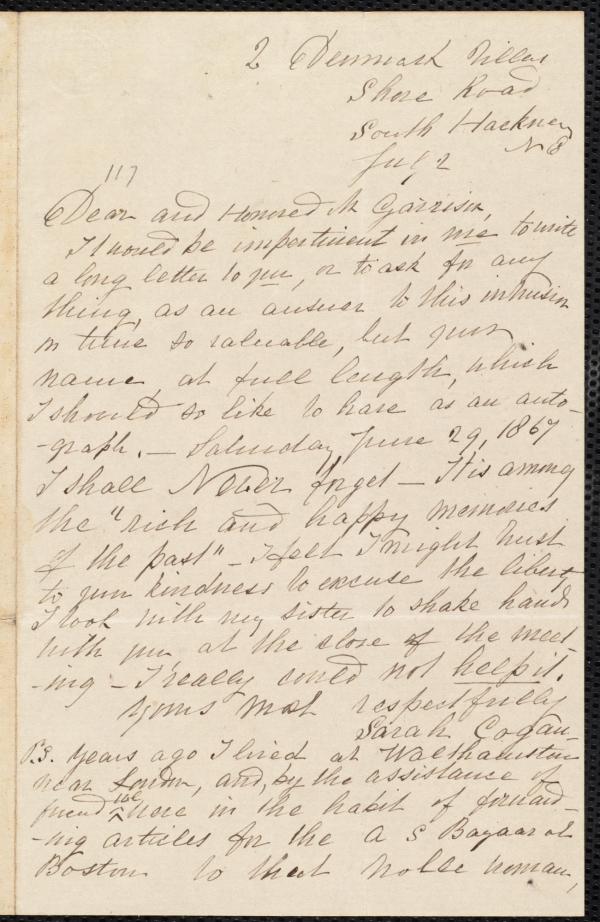 2 Denmark Villas
Shore Road
South Hackney
N E
July 2
117
Dear and Honored Mr Garrison,
It would be impertinent in me to write
a long letter to you, or to ask for any
thing, as an answer to this intrusion
on time so valuable, but your
name, at full length, which
I should so like to have as an auto-
-graph. — Saturday, June 29, 1867
I shall Never forget — It is among
the "rich and happy memories
of the past" — I felt I might trust
to your kindness to excuse the liberty
I took with my sister to shake hands
with you at the close of the meet
-ing — I really could not help it.
Yours most respectfully
Sarah Cogan
P.S. Years ago I lived at Walthamstow
near London, and, by the assistance of
friends we were in the habit of forward-
-ing articles for the A S Bazaar at
Boston to that noble woman,